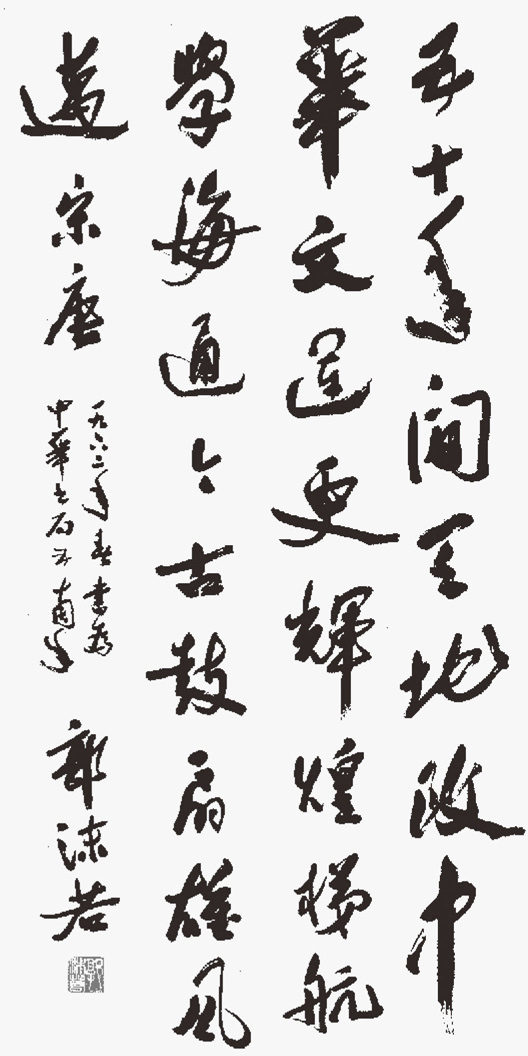 五十年間天地改中
華文運更輝煌梯航
學海通今古鼓扇雄風
邁宋唐
一九六二年春書為
中華书局五十周年
郭沫若